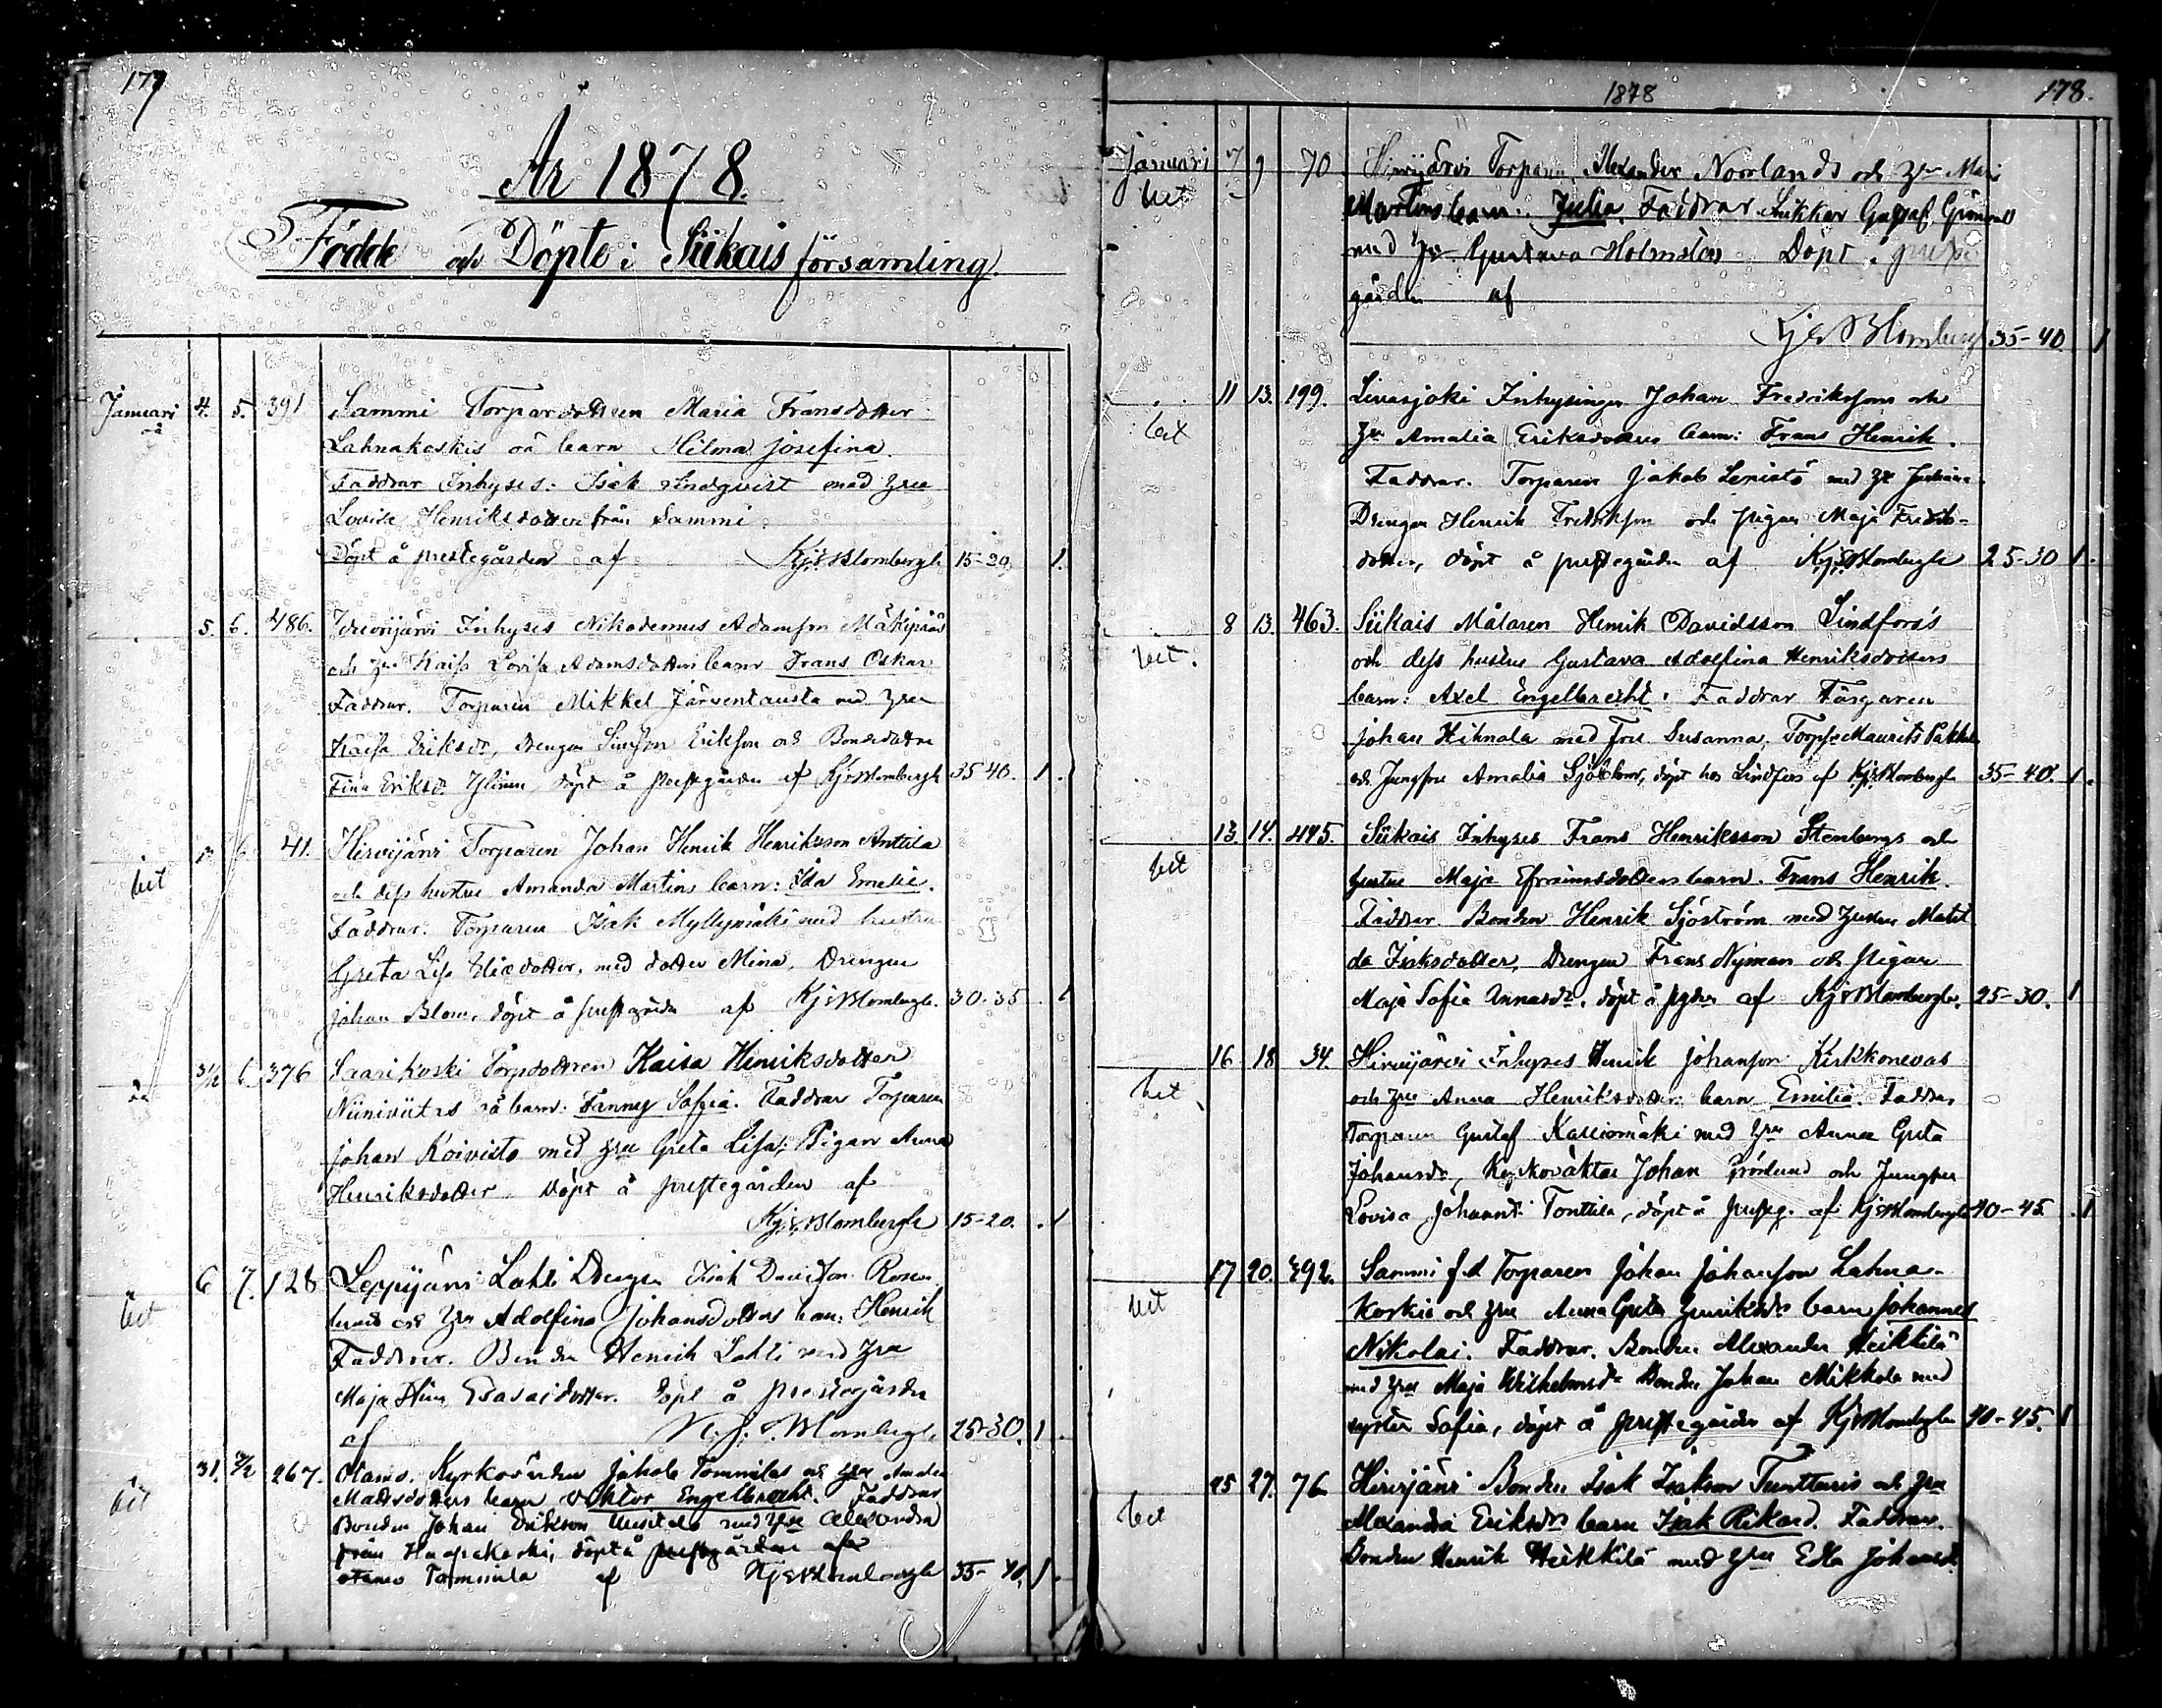 177
År 1878.
Födde och Döpte i Siikais församling.
Januari 4. 5. 391 Sammi Torpardottren Maria Fransdotter
oä Lahnakoskis oä barn Hilma Josefina.
Faddrar Inhyses: Isak Lindqvist med hru
Lovisa Henriksdotter från Sammi
Döpt å prestegården af Kj: E: Blombergh 15-20 1.
5. 6. 486. Inhyses Nikodemus Adamsson Mäkipääs
och hru Kaisa Lovisa Adamsdotters barn Frans Oskar
Faddrar. Torparen Mikkel Järventausta med hru
Kaisa Eriksdr, drengen Simson Eriksson och Bondedottren
Fina Eriksdr döpt å prestgården af Kj: E: Blombergh 35-40. 1.
6 41. Hirvijärvi Torparen Johan Henrik Henriksson Anttila
bet och dess hustru Amanda Martins barn: Ida Emelie.
Faddrar: Torparen Isak Myllymäki med hustru
Greta Lisa Eliædotter, med dotter Mina, Drengen
Johan Blom, döpt å prestgården af Kj: E: Blombergh. 30-35 1
31/12 6 376 Saarikoski Torpdottren Kaisa Henriksdotter
oä Niiniviitas oä barn: Fanny Sofia. Faddrar Torparen
Johan Koivisto med hru Greta Lisa; Pigan Anna
Henriksdotter, döpt å prestegården af
Kj: E: Blombergh 15-20. 1
6 7. 128 Leppijärvi Lahti Drengen Isak Davidson Rosen-
bet lunds och hru Adolfina Johansdotters barn: Henrik
Faddrar. Bonden Henrik Lahti med hru
Maja Stina Esaiædotter. Döpt å prestegården
af K. J. E. Blombergh. 25-30. 1.
31. 2/2 267. Otamo. Kyrkovärden Jakob Tommilas och hru Amalia
bet Mattsdotters barn Viktor Engelbrecht. Faddrar
Bonden Johan Erikson med hru Alexandra
från Haapakoski, döpt å prestgården af
Otamo Tommila af Kj: E: Blombergh 35-40. 1.
1878 178.
Januari 7 9 70 Hirvijärvi Torparen Alexander Norrlands och hru Mari
bet Martins barn. Julia. Faddrar Gustaf Grönroos
med hru Gustava Holmsten Döpt å preste
gården af
Kj: E: Blombergh 35-40 1
11 13. 199. Leväsjoki Inhysingen Johan Fredriksson och
bet hru Amalia Eriksdotters barn: Frans Henrik.
Faddrar. Torparen Jakob Lepistö med hr
Drengen Henrik Fredriksson och pigan Maja Fredriks-
dotter, döpt å prestegården af Kj: E: Blombergh 25-30 1.
8 13. 463. Siikais Målaren Henrik Davidsson Lindfors's
bet. och dess hustru Gustava Adolfina Henriksdotters
barn: Axel Engelbrecht. Faddrar Färgaren
Johan Hihnala med fru Susanna. Torps: Maurits
och Jungfru Amalia Sjöblom, döpt hos Lindfors af Kj: E: Blombergh 35-40. 1.
13. 14. 445. Siikais Inhyses Frans Henriksson Stenbergs och
bet hustru Maja Efraimsdotters barn. Frans Henrik.
Faddrar. Bonden Henrik Sjöström med hustru Matil
da Isaksdotter, Drengen Frans Nyman och pigan
Maja Sofia Annasdr. döpt å pgden af Kj: E: Blombergh. 25-30. 1
16 18 34. Hirvijärvi Inhyses Henrik Johansson Kirkkonevas
bet och hru Anna Henriksdotters barn Emilia. Faddrar
Torparen Gustaf Kalliomäki med hru Anna Greta
Johansdr, Kyrkoväktar Johan Grönlund och Jungfru
Lovisa Johansd: Tonttila, döpt å presteg. af Kj: E: Blombergh 40-45. 1
17 20. 392. Sammi f.d Torparen Johan Johansson Lahna-
bet koskis och hru Anna Greta Henriksdrs barn Johannes
Nikolai. Faddrar. Bonden Alexander Heikkilä
med hru Maja Wilhelmsdr Bonden Johan Mikkola med
syster Sofia, döpt å prestegården af Kj: E: Blombergh 40-45. 1
25 27. 76 Hirvijärvi Bonden Isak Isakson Tuntturis och hru
bet Alexandra Eriksdrs barn Isak Rikard. Faddrar.
Bonden Henrik Heikkilä med hru Edla Johansd.